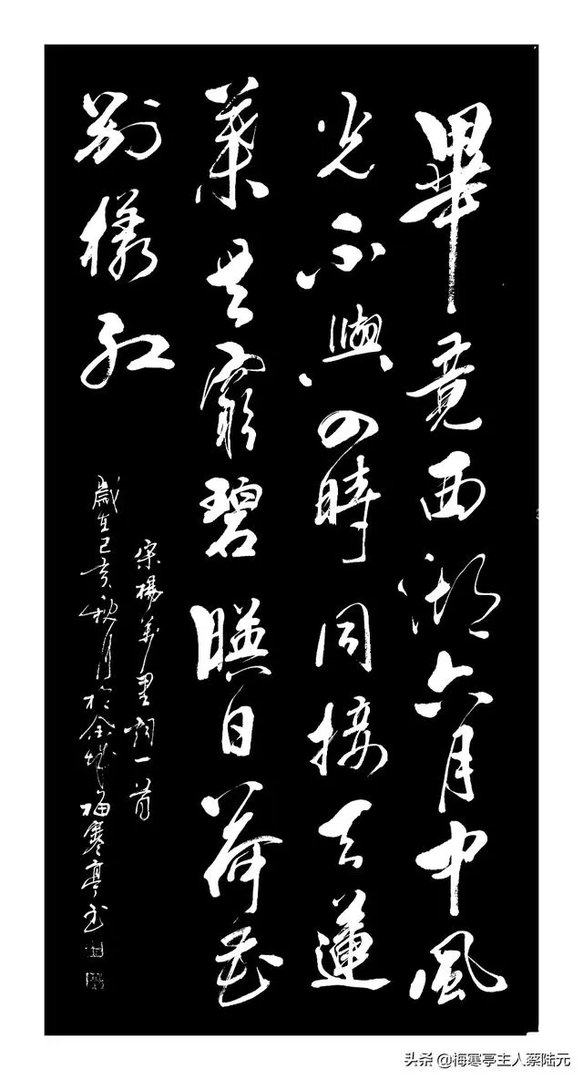 畢竟西湖六月中風
光不與四時同接天蓮
葉無窮碧暎日荷花
別樣紅
宋楊萬里詞一首
歲在己亥秋月於金城梅寒亭書
头条 @梅寒亭主人蔡陆元